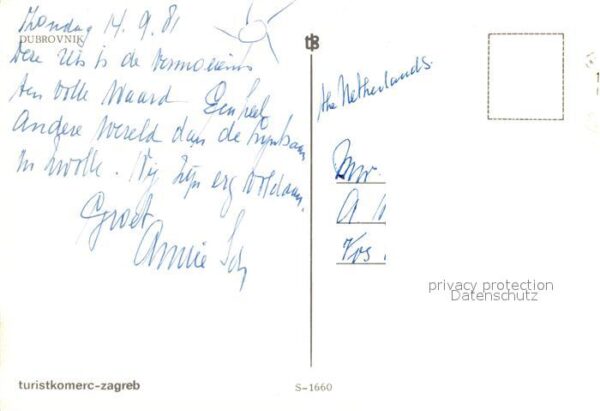 Zondag 14.9.81
DUBROVNIK
Deze reis is de vermoeienis
ten volle waard. Een heel
andere wereld dan de
in Zwolle. Wij zijn erg voldaan.
Groet
Annie
the Netherlands.
Mw.
A
Vos
privacy protection
Datenschutz
turistkomerc-zagreb
S-1660